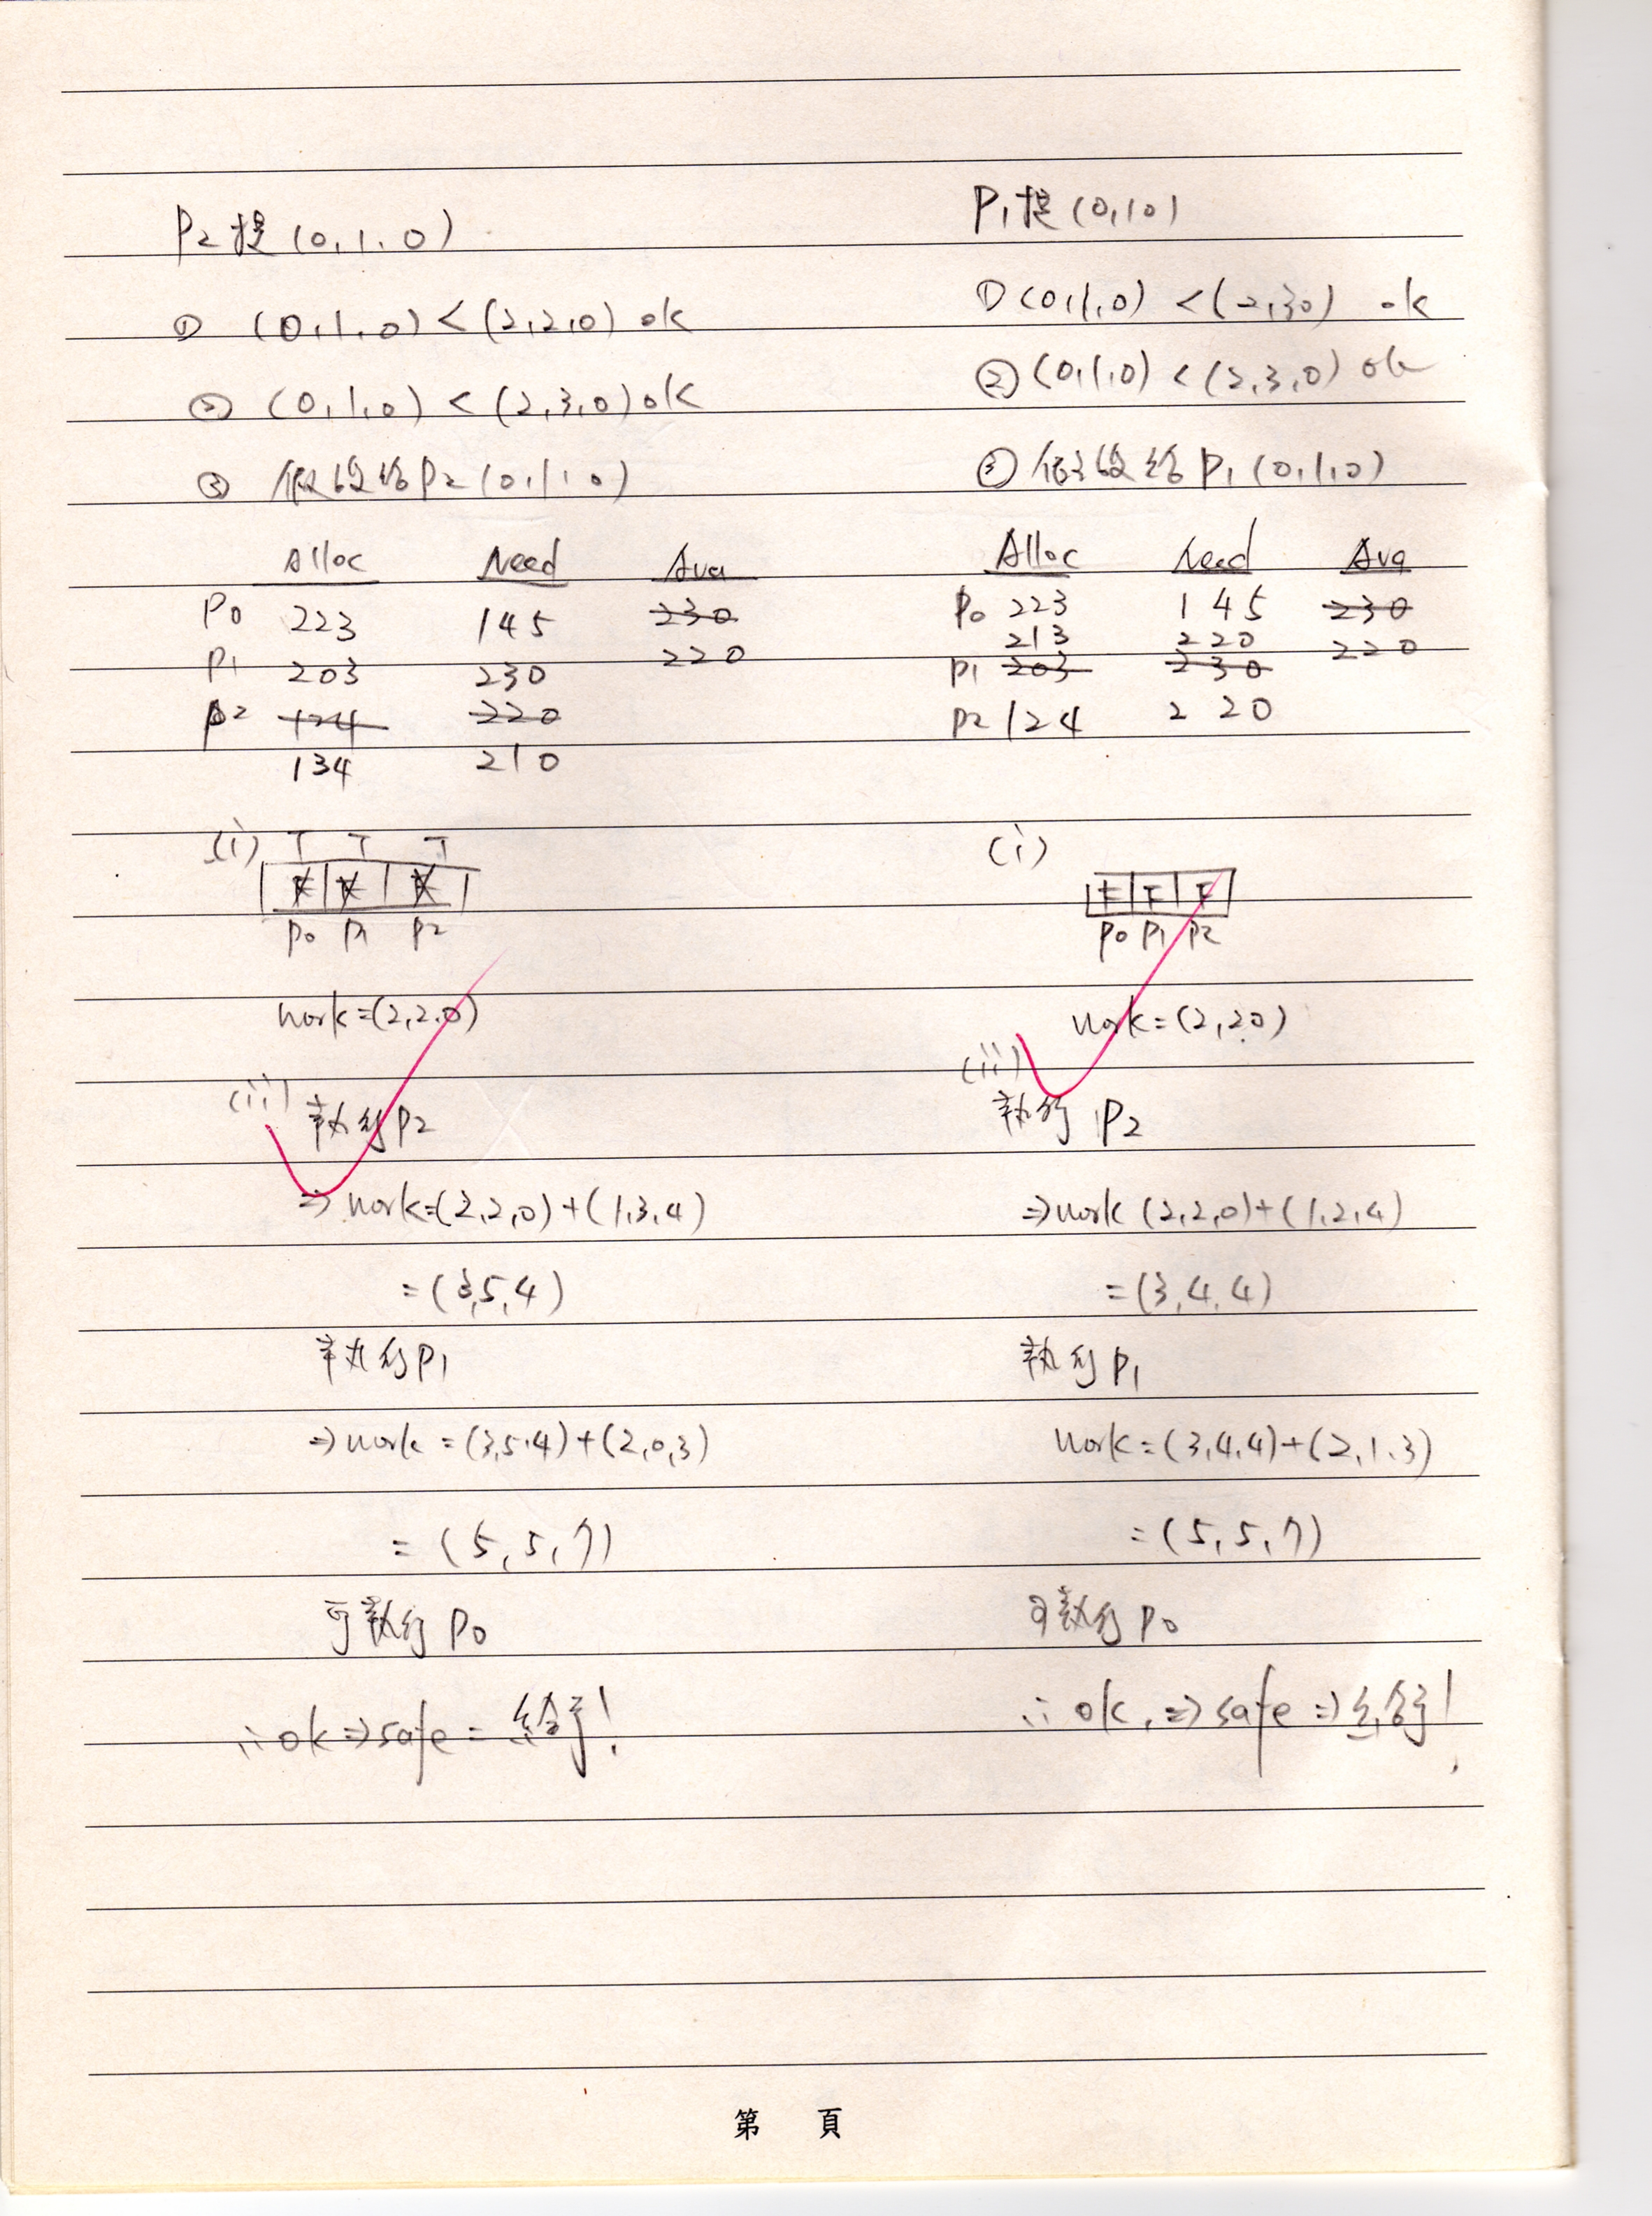 P2提(0,1,0)
① (0,1,0)<(2,2,0) ok
② (0,1,0)<(2,3,0) ok
③ 假設給P2(0,1,0)
Alloc Need Ava
P0 223 145 230
220
P1 203 230
P2 124 220
134 210
(i) T T T
F F F
P0 P1 P2
work=(2,2,0)
(ii) 執行P2
⇒work=(2,2,0)+(1,3,4)
=(3,5,4)
執行P1
⇒work=(3,5,4)+(2,0,3)
=(5,5,7)
可執行P0
∴ok⇒safe=給予!
P1提(0,1,0)
①(0,1,0)<(2,3,0) ok
②(0,1,0)<(2,3,0) ok
③假設給P1(0,1,0)
Alloc Need Ava
P0 223 145 230
213 220 220
P1 203 230
P2 124 220
(i)
F F F
P0 P1 P2
work=(2,2,0)
(ii)
執行P2
⇒work (2,2,0)+(1,2,4)
=(3,4,4)
執行P1
work=(3,4,4)+(2,1,3)
=(5,5,7)
可執行P0
∴ok.⇒safe⇒給予!
第 頁